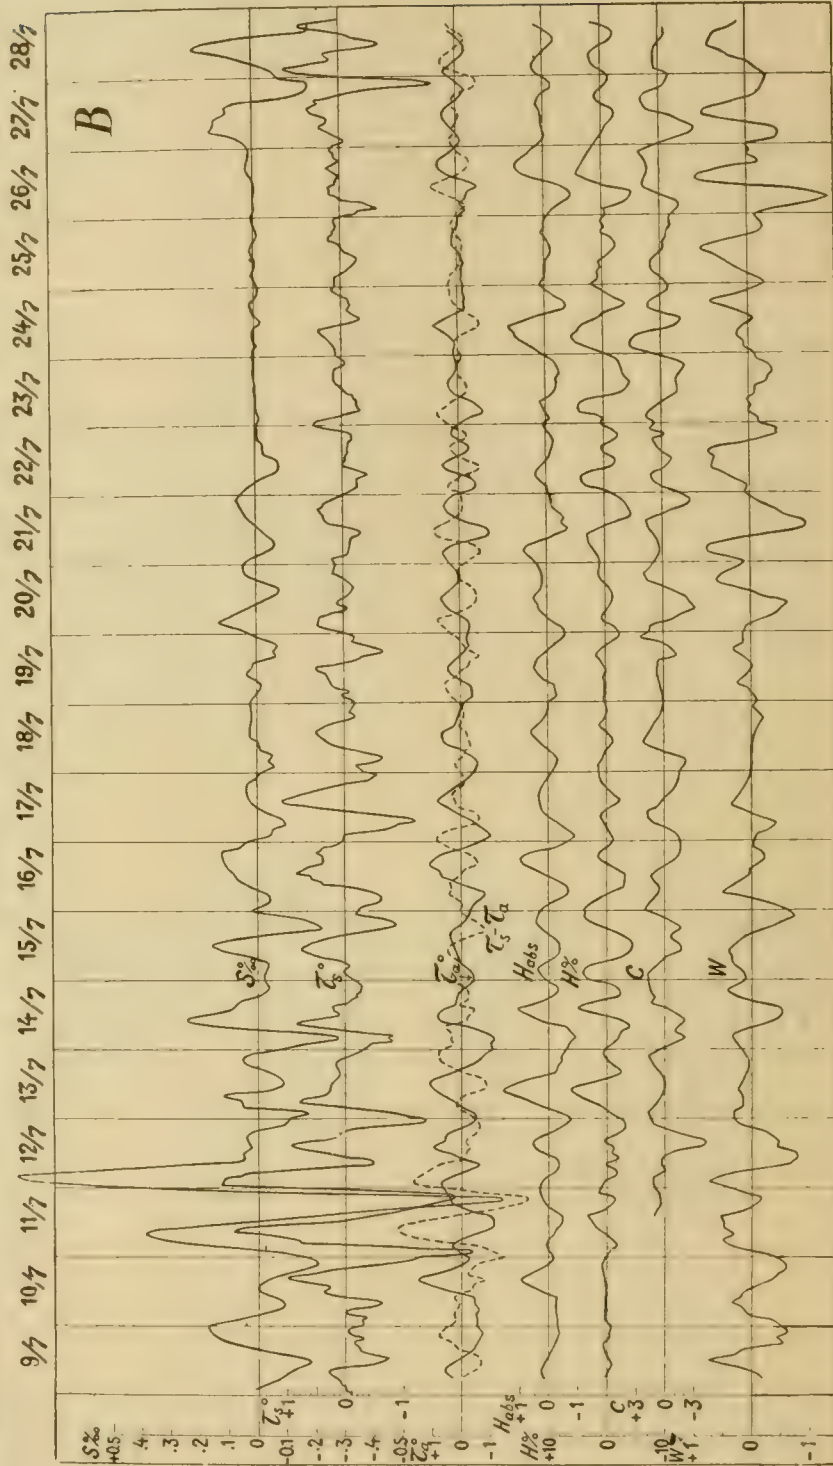 9/7 10/7 11/7 12/7 13/7 14/7 15/7 16/7 17/7 18/7 19/7 20/7 21/7 22/7 23/7 24/7 25/7 26/7 27/7 28/7
B
S‰
+0.5
.4
.3
.2
.1
0
-0.1
-.2
-.3
-.4
-0.5
τs°
+1
0
-1
τa°
+1
0
-1
Habs
+1
0
-1
H%
+10
0
-10
C
+3
0
-3
W
+1
0
-1
S‰
τs°
τa°
τs-τa
Habs
H%
C
W